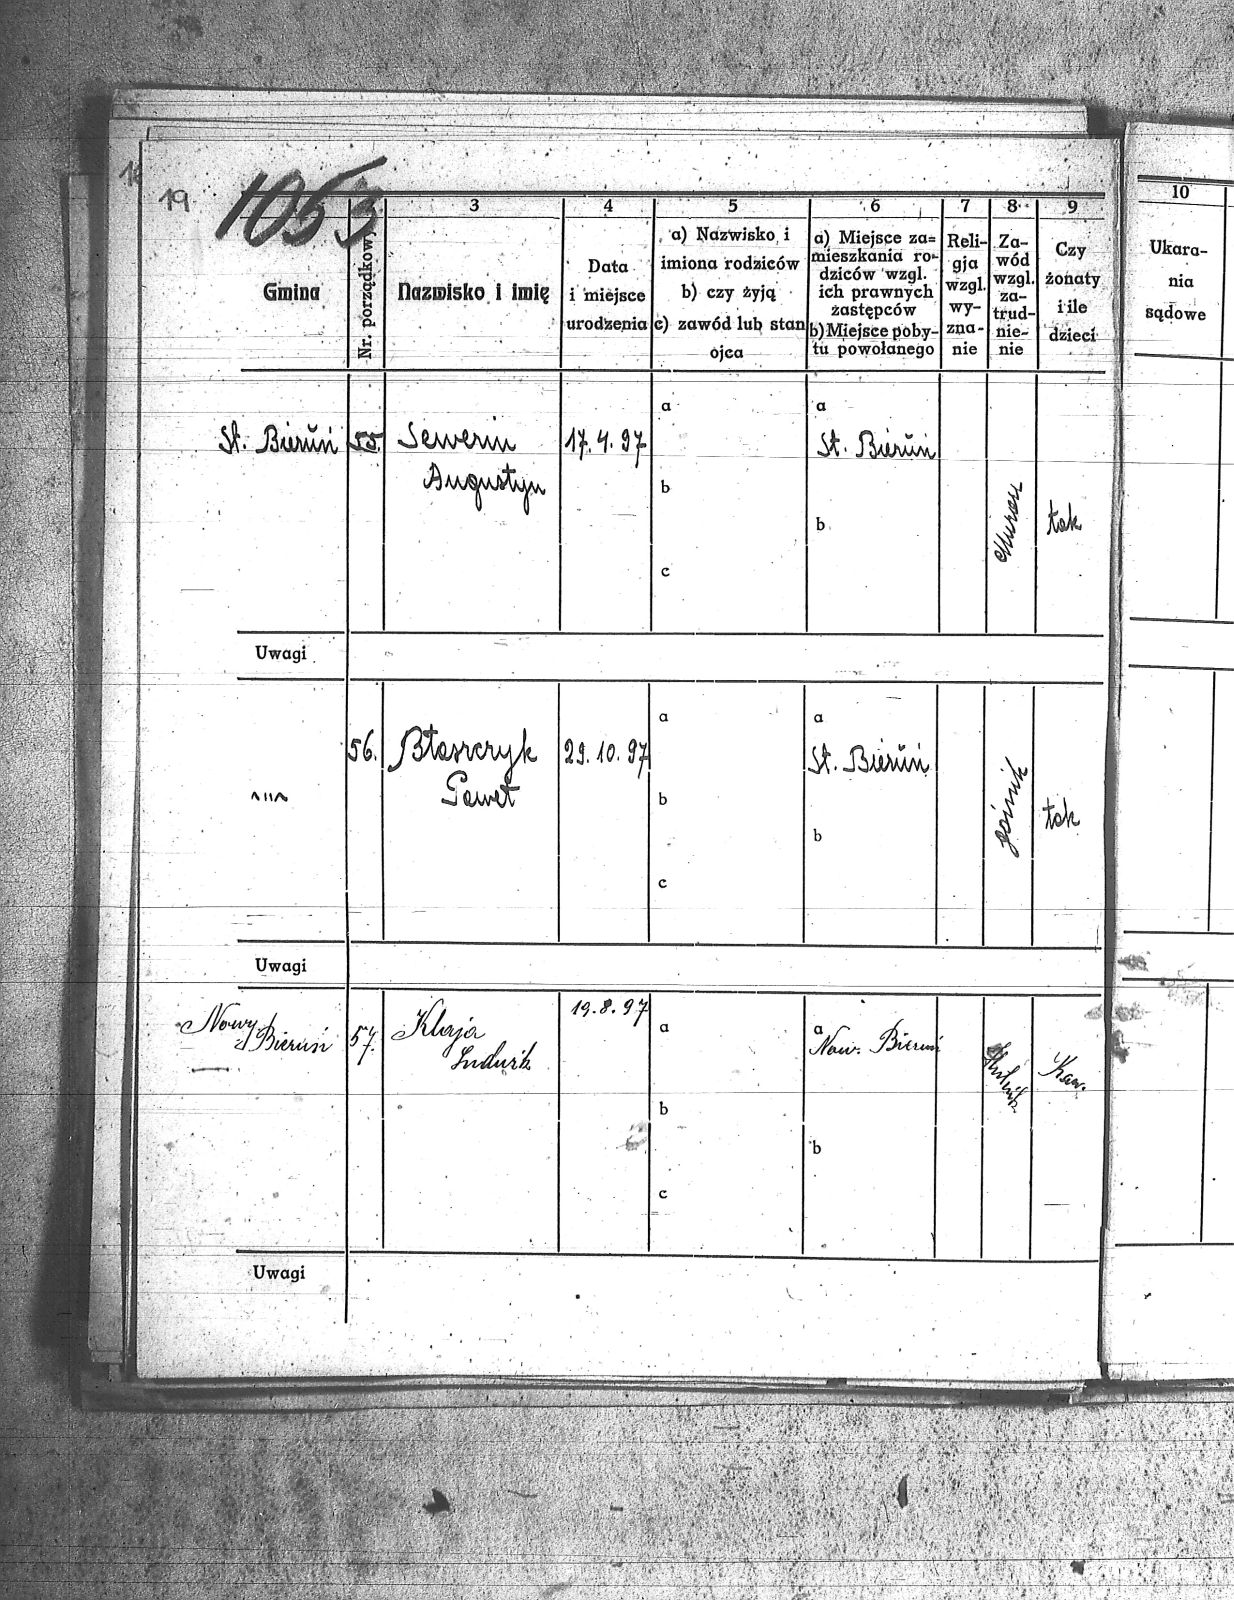 19
1053
3 4 5 6 7 8 9 10
Gmina
Nr. porządkowy
Nazwisko i imię
Data
i miejsce
urodzenia
a) Nazwisko i
imiona rodziców
b) czy żyją
c) zawód lub stan
ojca
a) Miejsce za=
mieszkania ro-
dziców wzgl.
ich prawnych
zastępców
b) Miejsce poby-
tu powołanego
Reli-
gja
wzgl.
wy-
zna-
nie
Za-
wód
wzgl.
za-
trud-
nie-
nie
Czy
żonaty
i ile
dzieci
Ukara-
nia
sądowe
St. Bieruń 55. Sewerin 17.4.97 a a St. Bieruń
Augustyn b
b Murarz tak
c
Uwagi
56. Błaszczyk 29.10.97 a a St. Bieruń
〃 Paweł b
b górnik tak
c
Uwagi
Nowy Bieruń 57. Klaja 19.8.97 a a Now. Bieruń
Ludwik Kaw.
b
b
c
Uwagi